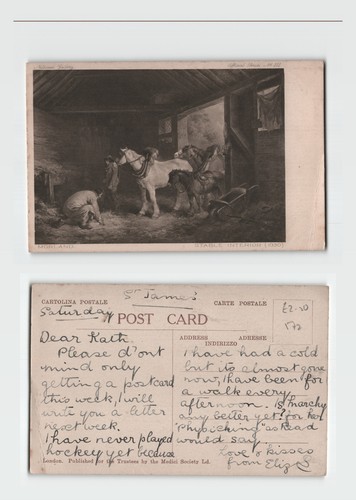 MORLAND
STABLE INTERIOR (1790)
St James
CARTOLINA POSTALE
CARTE POSTALE
Saturday
POST CARD
£2-50
ADDRESS ADRESSE
INDIRIZZO
Dear Kath.
Please d'ont
mind only
getting a postcard
this week, I will
write you a letter
next week.
I have never played
hockey yet because
I have had a cold
but its almost gone
now, I have been for
a walk every
afternoon. Is marchy
any better yet? for her
"Physicking" as Read
would say.
Love & kisses
from Eliz
London. Published for the Trustees by the Medici Society Ltd.